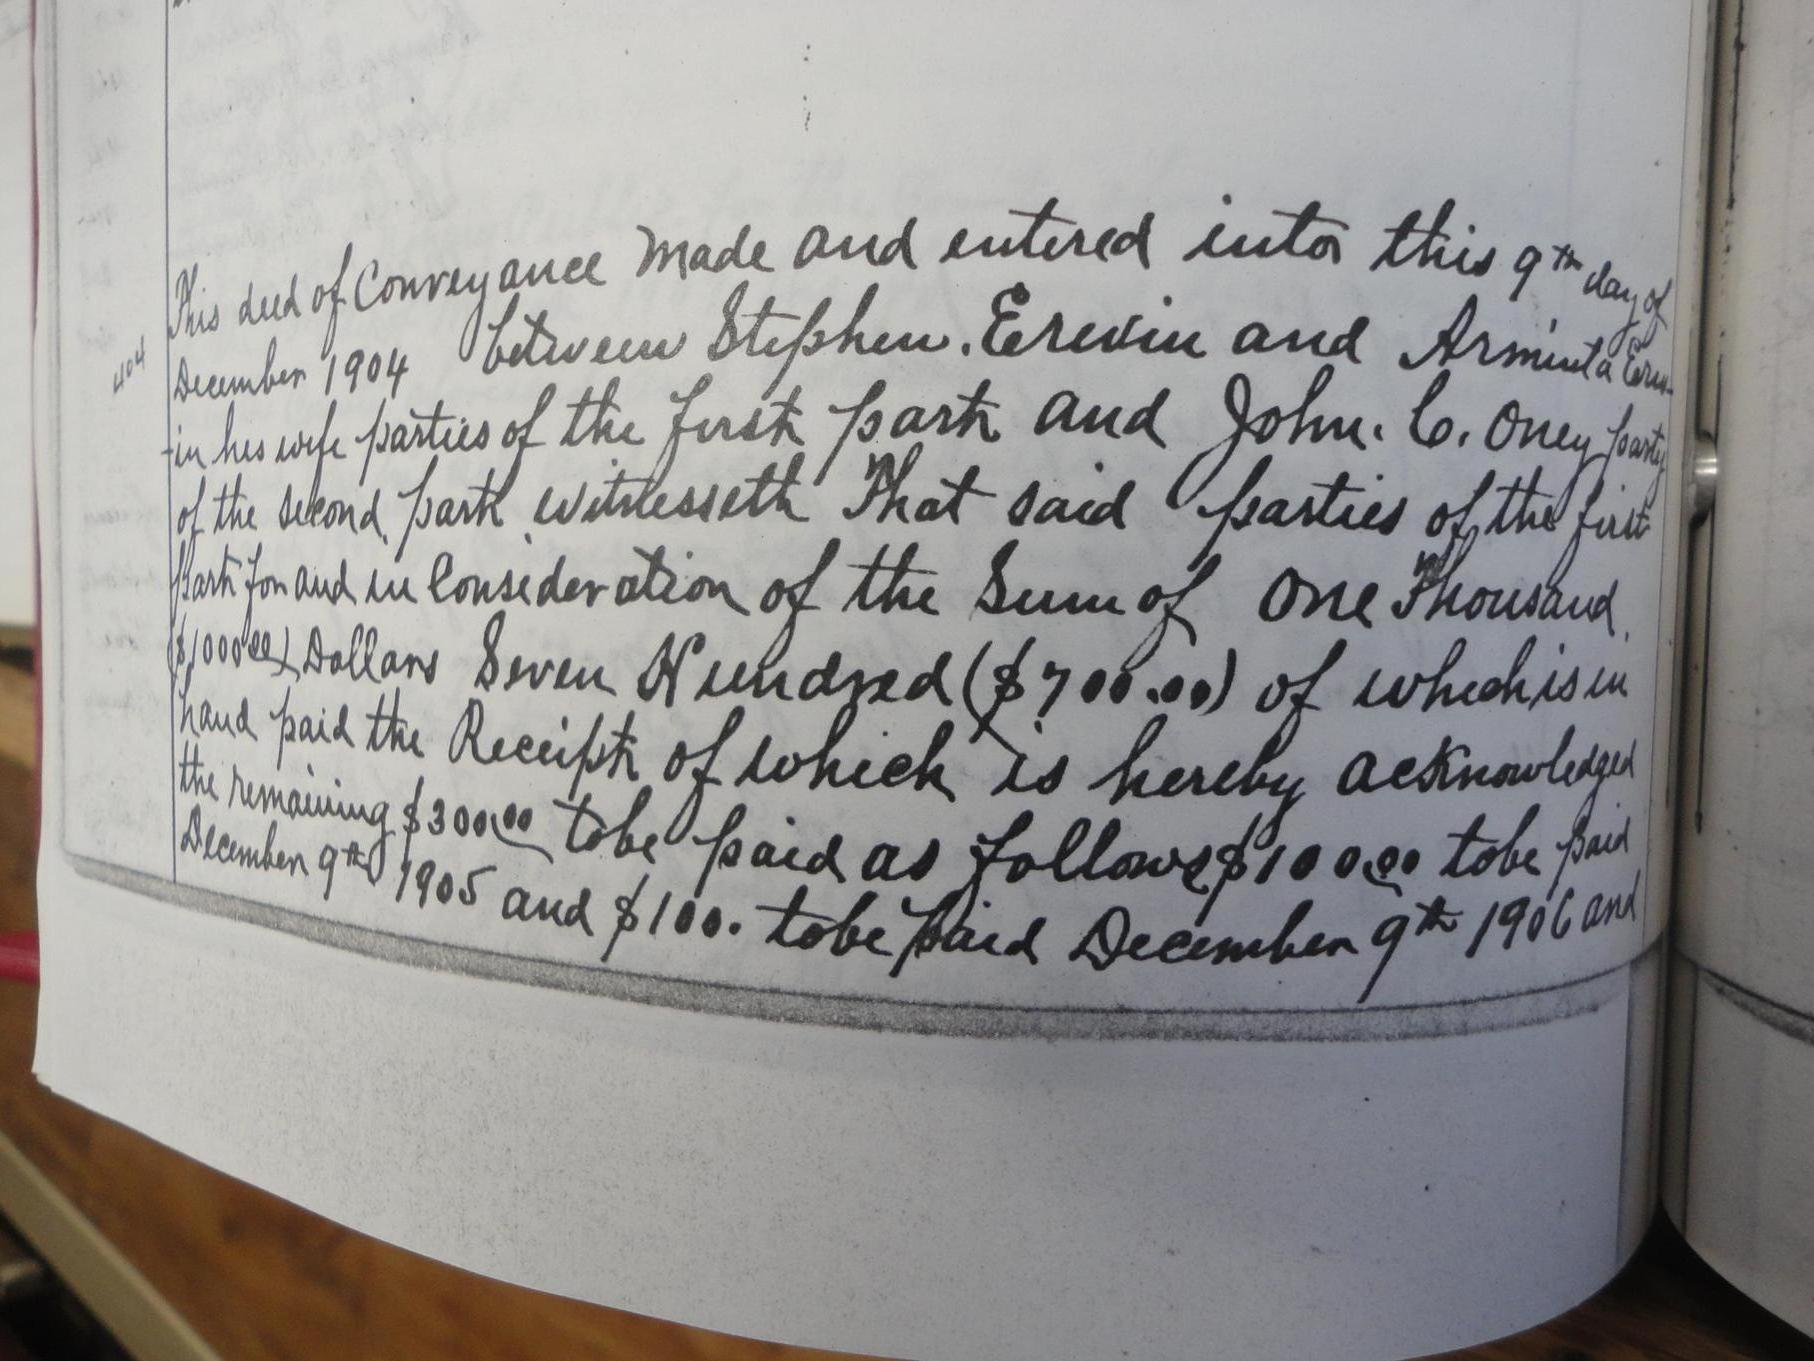 This deed of Conveyance Made and entered into this 9th day of
404
December 1904 between Stephen. Erevin and Arminta Erev-
-in his wife parties of the first part and John. C. Oney party
of the second part witnesseth That said parties of the first
part for and in Consideration of the Sum of One Thousand
($1000.00) Dollars Seven Hundred ($700.00) of which is in
hand paid the Receipt of which is hereby acknowledged
the remaining $300.00 to be paid as follows $100.00 to be paid
December 9th 1905 and $100. to be paid December 9th 1906 and